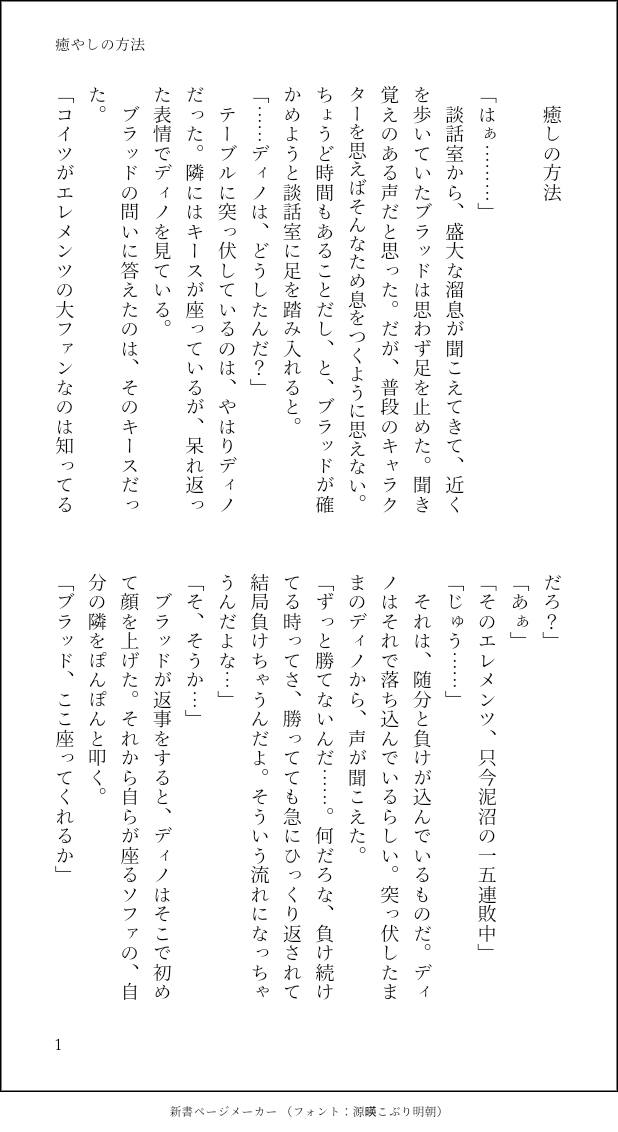 癒やしの方法
癒しの方法
「はぁ………」
　談話室から、盛大な溜息が聞こえてきて、近く
を歩いていたブラッドは思わず足を止めた。聞き
覚えのある声だと思った。だが、普段のキャラク
ターを思えばそんなため息をつくように思えない。
ちょうど時間もあることだし、と、ブラッドが確
かめようと談話室に足を踏み入れると。
「……ディノは、どうしたんだ？」
　テーブルに突っ伏しているのは、やはりディノ
だった。隣にはキースが座っているが、呆れ返っ
た表情でディノを見ている。
　ブラッドの問いに答えたのは、そのキースだっ
た。
「コイツがエレメンツの大ファンなのは知ってる
だろ？」
「あぁ」
「そのエレメンツ、只今泥沼の一五連敗中」
「じゅう……」
　それは、随分と負けが込んでいるものだ。ディ
ノはそれで落ち込んでいるらしい。突っ伏したま
まのディノから、声が聞こえた。
「ずっと勝てないんだ……。何だろな、負け続け
てる時ってさ、勝ってても急にひっくり返されて
結局負けちゃうんだよ。そういう流れになっちゃ
うんだよな…」
「そ、そうか…」
　ブラッドが返事をすると、ディノはそこで初め
て顔を上げた。それから自らが座るソファの、自
分の隣をぽんぽんと叩く。
「ブラッド、ここ座ってくれるか」
1
新書ページメーカー（フォント：源暎こぶり明朝）